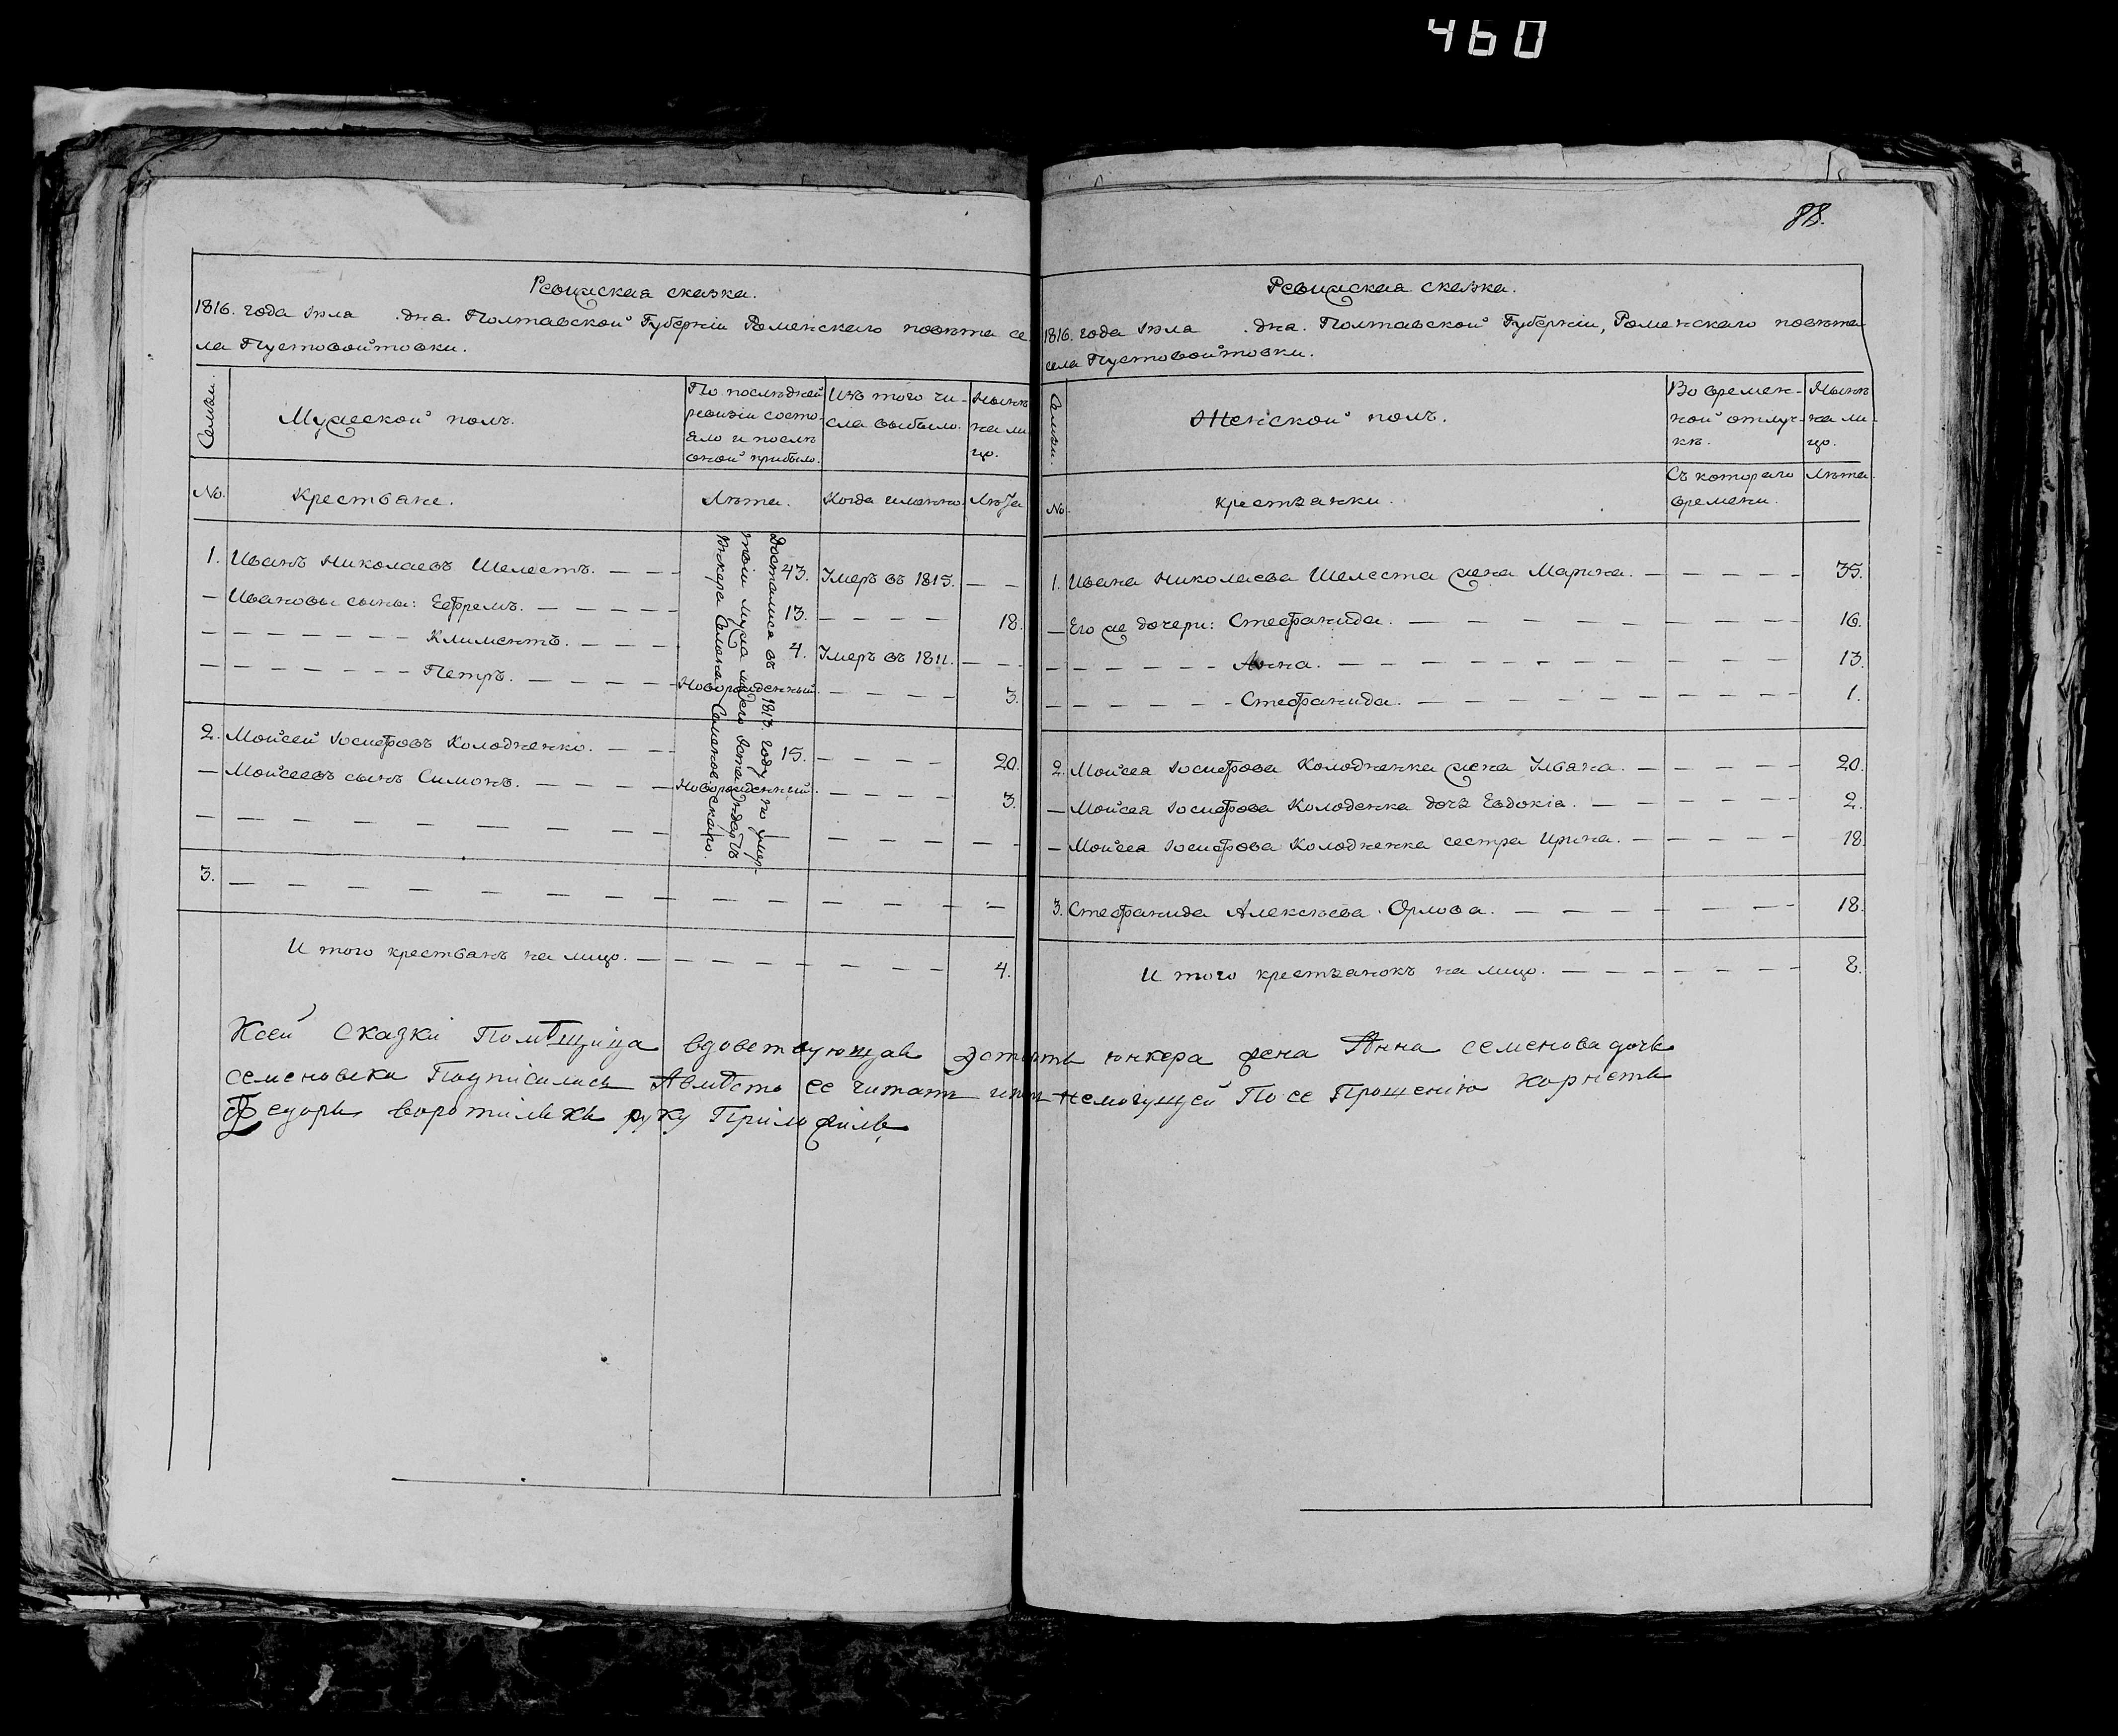 460
88.
Ревижская сказка.
1816. года Іюла . дна. Полтавской Губерніи Роменскаго повѣта се
ла Пустовойтовки.
Семьи.
Мужеской полъ.
По послѣдней
ревизіи состо-
яло и послѣ
оной прибыло.
Изъ того чи-
сла выбыло.
Нынѣ
на ли
цо.
No.
Крестьане.
Лѣта.
Когда именно.
Лѣта
1. Иванъ Николаевъ Шелестъ. — — 43. Умеръ въ 1815. — —
— Ивановы сыны: Ефремъ. — — — — 13. — — — — 18.
— — — — — — — Климентъ. — — — 4. Умеръ въ 1811. — —
— — — — — — — Петръ. — — — — Новорожденный. — — — — 3.
2. Мойсей Іосифовъ Колодченко. — — 15. — — — — 20.
— Мойсеевъ сынъ Симонъ. — — — — Новорожденный. — — — — 3.
Досталися въ 1813. году по умер-
твіи мужа моего Эстандартъ
Юнкера Симона Семеновскаго.
3. — — — — — — — — — — — — —
И того крестьанъ на лицо. — — — — — — — — 4.
Ревижская сказка.
1816. года Іюла . дна. Полтавской Губерніи, Роменскаго повѣта
села Пустовойтовки.
Семьи.
Женской полъ.
Во времен-
ной отлуч-
кѣ.
Нынѣ
на ли-
цо.
No.
крестьанки.
Съ котораго
времени.
Лѣта.
1. Ивана Николаева Шелеста жена Марина. — — — — — 35.
— Его же дочери: Стефанида. — — — — — — — — 16.
— — — — — — Анна. — — — — — — — — — — 13.
— — — — — — Стефанида. — — — — — — — — 1.
2. Мойсея Іосифова Колодченка жена Ульяна. — — — — — 20.
— Мойсея Іосифова Колоденка дочь Евдокіа. — — — — — — 2.
— Мойсея Іосифова Колодченка сестра Ирина. — — — — — 18.
3. Стефанида Алексѣева Орлова. — — — — — — — 18.
И того крестьанокъ на лицо. — — — — — — — 8.
Ксей сказки Помѣщица вдовствующая Эстантъ юнкера жена Анна семенова дочь
семеновска Подписалась Авмѣсто ее читать и немогущей По ее Прошенію Корнетъ
Федоръ воротилякъ руку Приложилъ